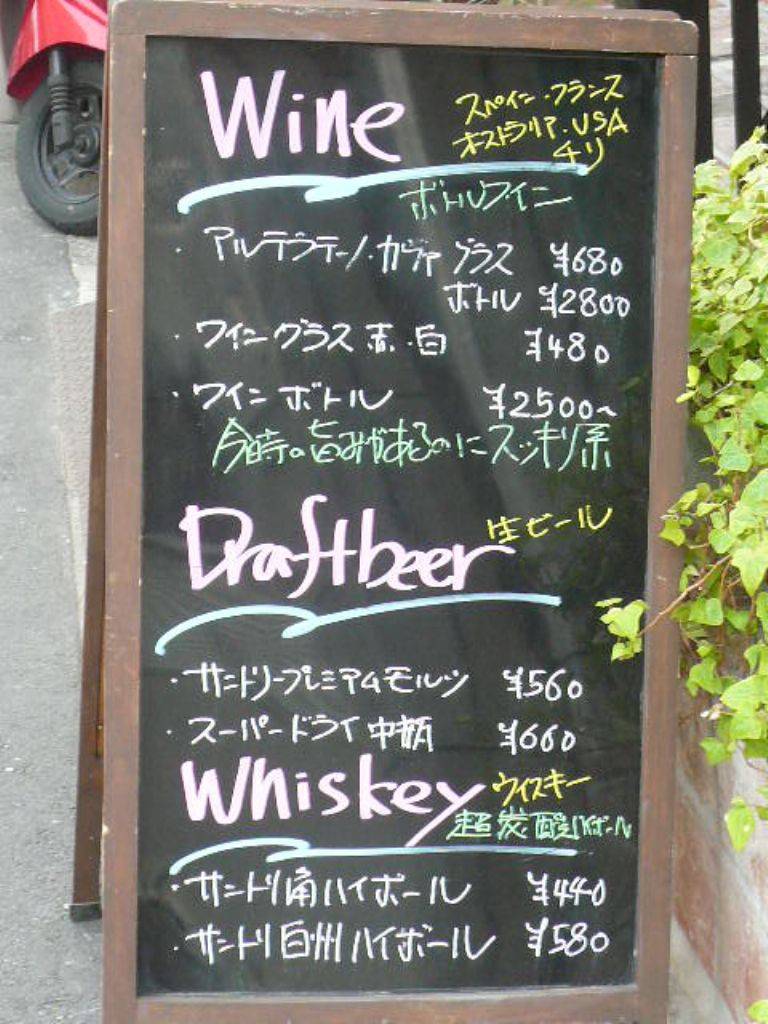 Wine スペイン・フランス
オーストラリア・USA
チリ
ボトルワイン
・アルテラテーノ・カヴァ グラス ¥680
ボトル ¥2800
・ワイングラス 赤・白 ¥480
・ワインボトル ¥2500~
今時の旨みがあるのにスッキリ系
Draftbeer 生ビール
・サントリープレミアムモルツ ¥560
・スーパードライ 中瓶 ¥660
Whiskey ウイスキー
超炭酸ハイボール
・サントリー角ハイボール ¥440
・サントリー白州ハイボール ¥580